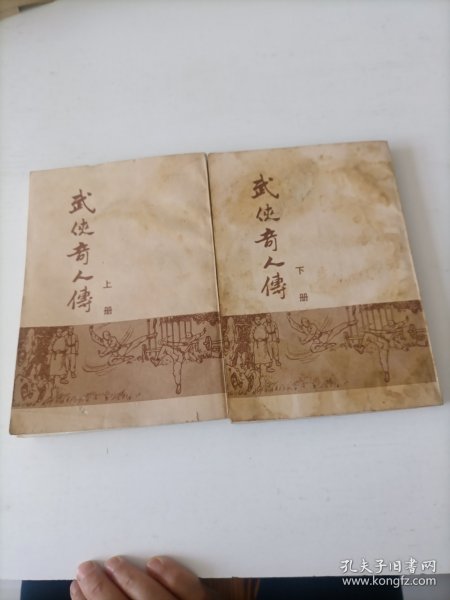 武俠奇人傳
上册
武俠奇人傳
下册
孔夫子旧书网
www.kongfz.com